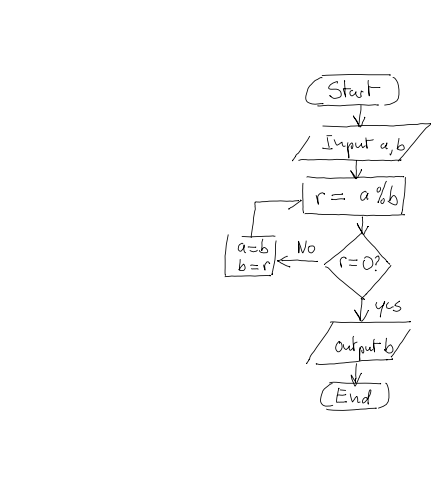 Start
Input a, b
r = a % b
r=0?
No
a=b
b=r
yes
output b
End